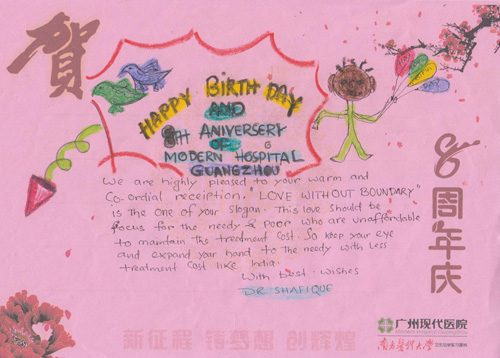 賀
HAPPY BIRTH DAY
AND
8TH ANIVERSERY OF
MODERN HOSPITAL
GUANGZHOU
We are highly pleased to your warm and
Co-ordial receiption. "LOVE WITHOUT BOUNDARY"
is the one of your slogan. This love should be
focus for the needy & poor who are unaffordable
to maintain the treatment cost. So keep your eye
and expand your hand to the needy with less
treatment cost like India.
With best wishes
DR SHAFIQUE
8周年庆
新征程 铸梦想 创辉煌
广州现代医院
南方医科大学